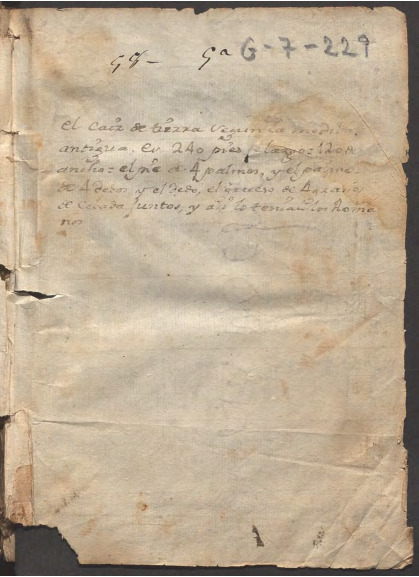 59- 5a G-7-229
el Caiz de tierra segun la medida
antigua. Es 240 pies de largo= 120 de
ancho= el pie de 4 palmos, y el palmo
de 4 dedos, y el dedo, el grueso de 4 granos
de Cebada juntos, y asi lo tenian los Roma
nos